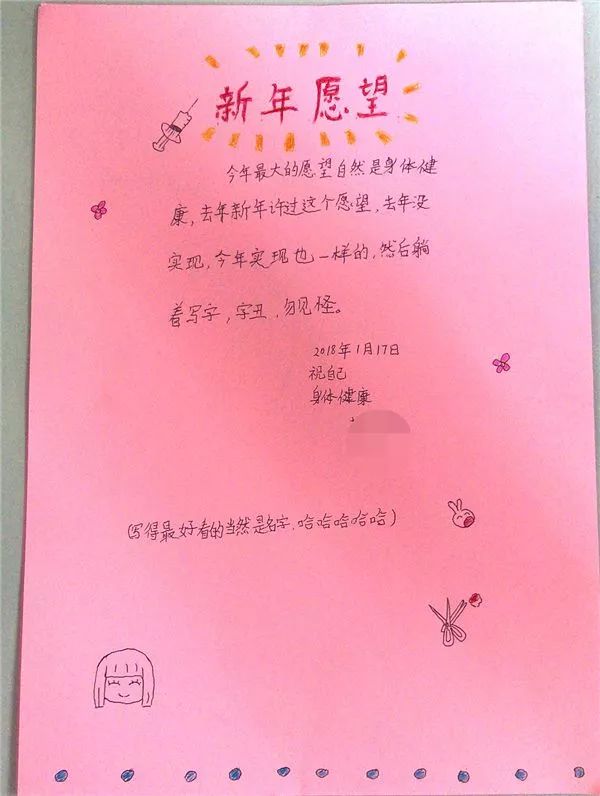 新年愿望
今年最大的愿望自然是身体健
康,去年新年许过这个愿望,去年没
实现,今年实现也一样的,然后躺
着写字,字丑,勿见怪。
2018年1月17日
祝自己
身体健康
(写得最好看的当然是名字,哈哈哈哈哈)